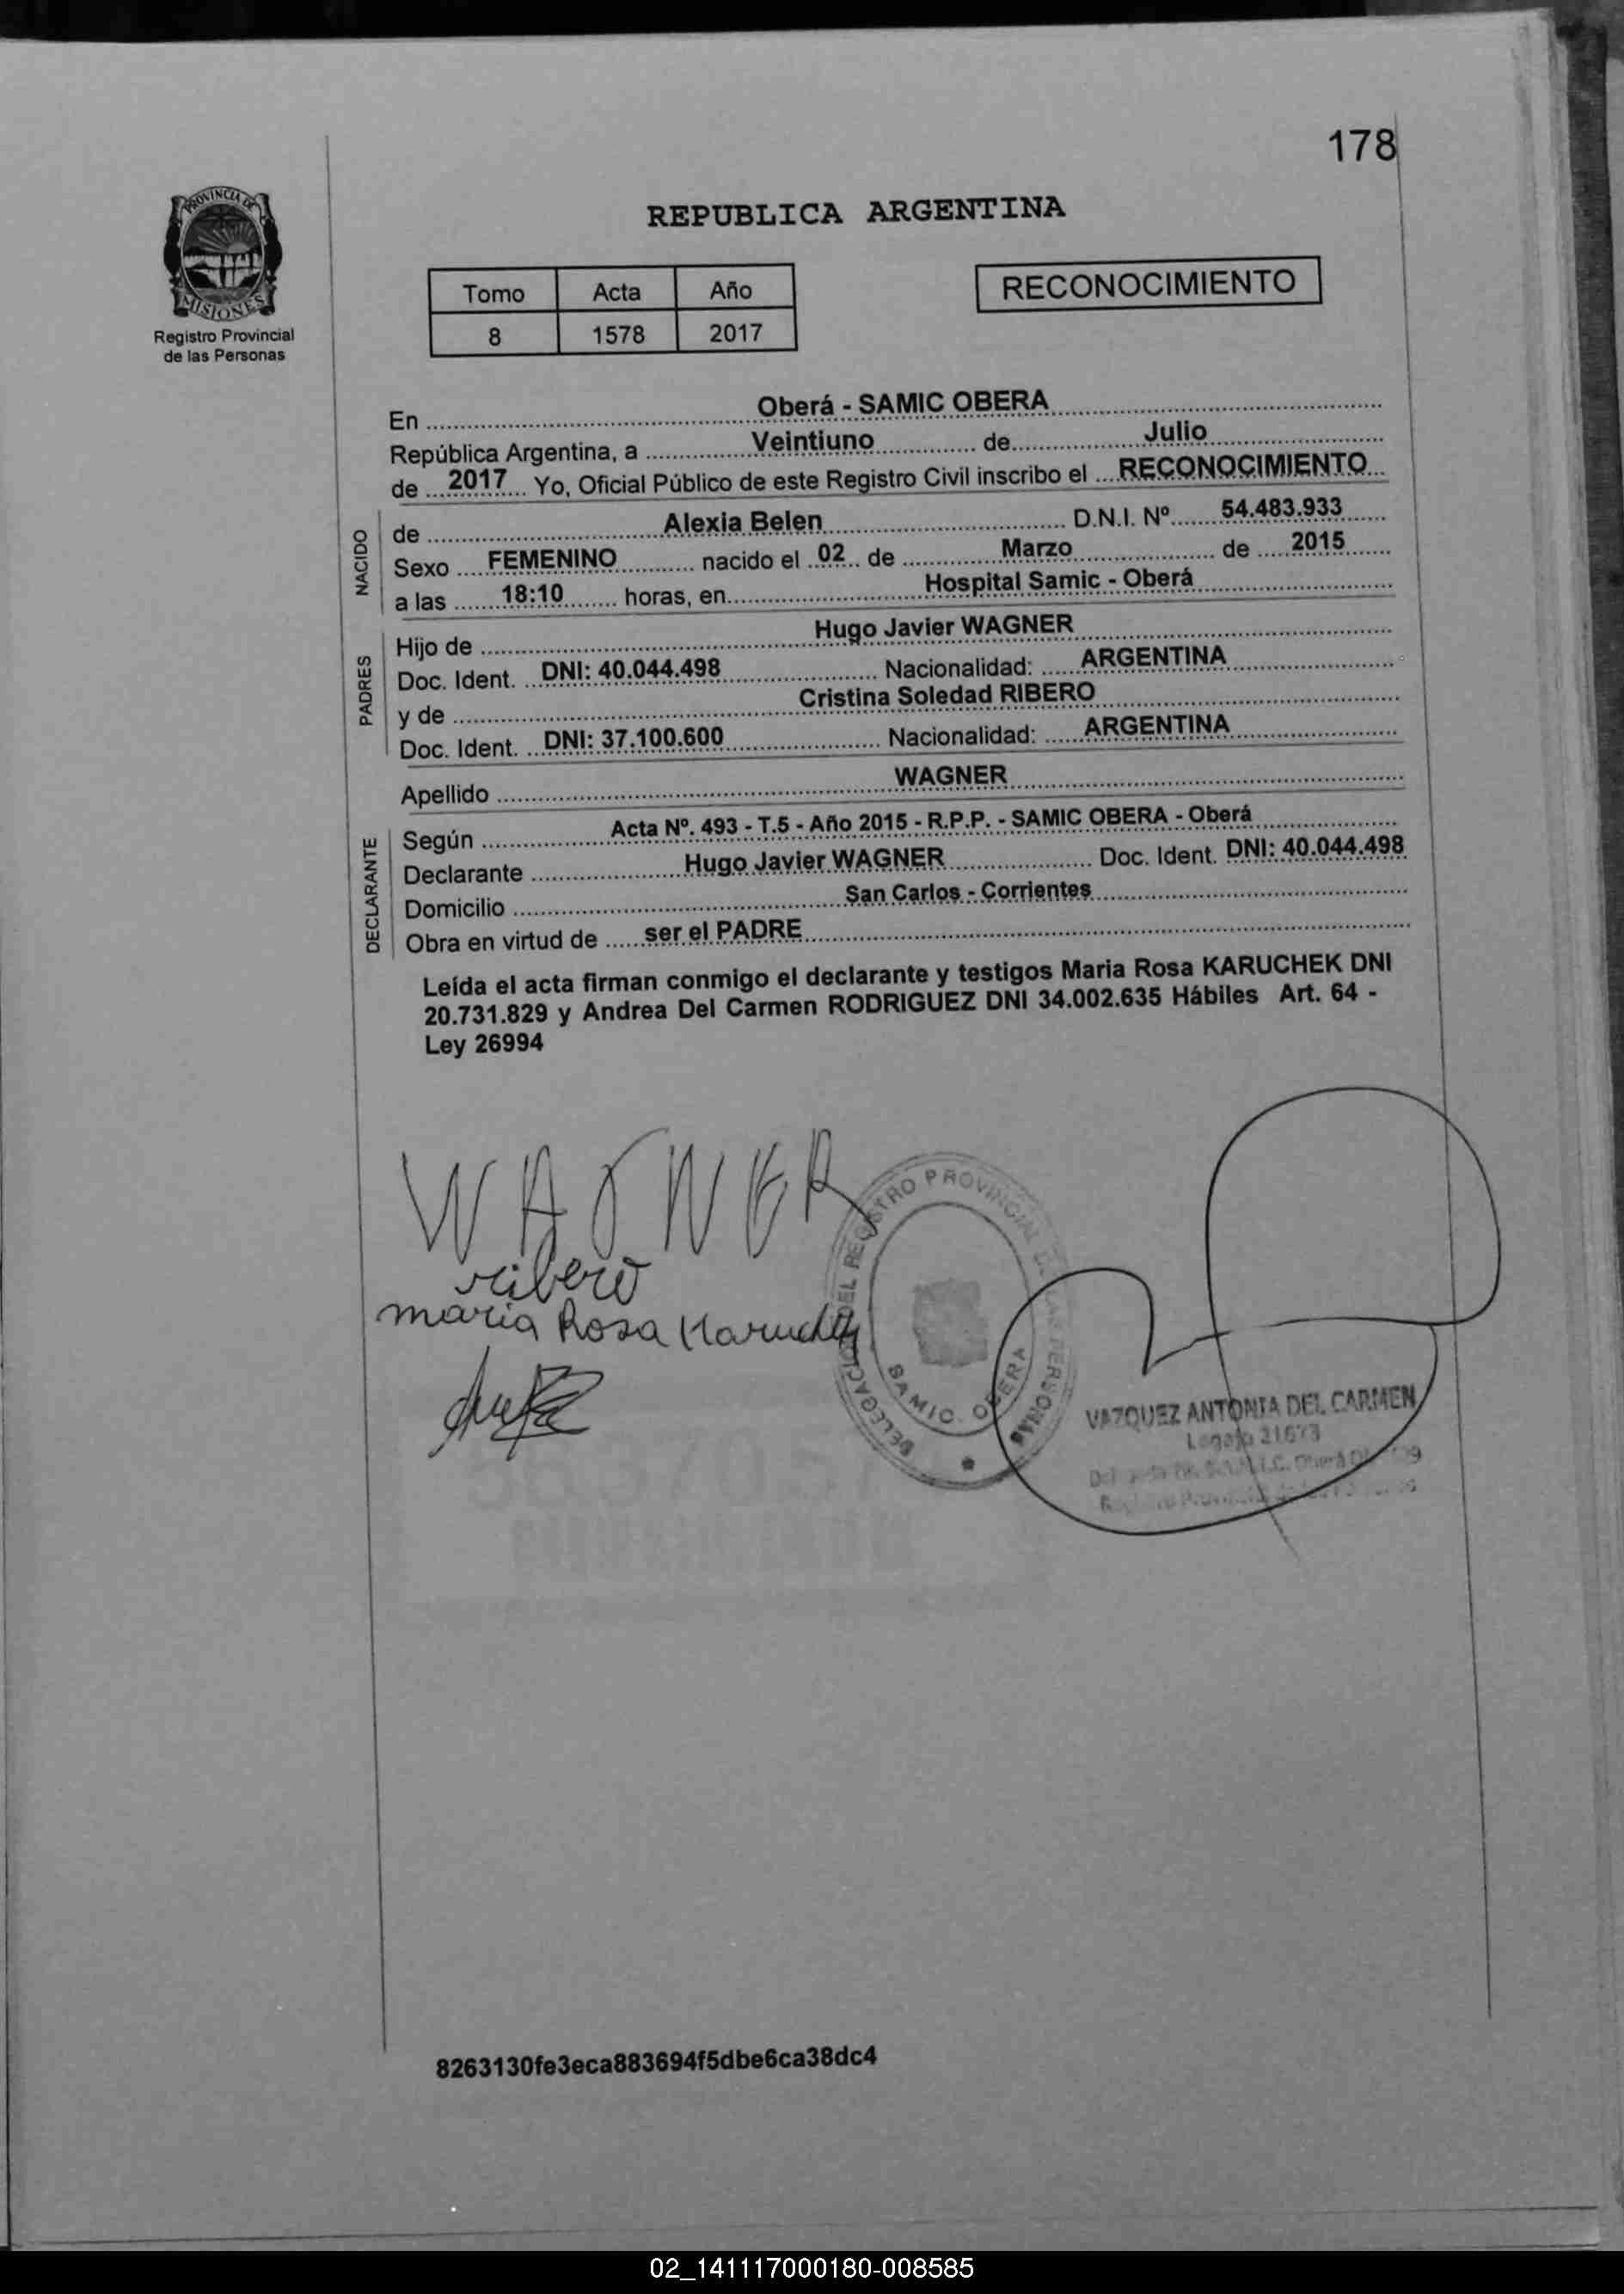 178
PROVINCIA DE
MISIONES
Registro Provincial
de las Personas
REPUBLICA ARGENTINA
Tomo Acta Año
8 1578 2017
RECONOCIMIENTO
En Oberá - SAMIC OBERA
República Argentina, a Veintiuno de Julio
de 2017 Yo, Oficial Público de este Registro Civil inscribo el RECONOCIMIENTO
NACIDO
de Alexia Belen D.N.I. Nº 54.483.933
Sexo FEMENINO nacido el 02 de Marzo de 2015
a las 18:10 horas, en Hospital Samic - Oberá
PADRES
Hijo de Hugo Javier WAGNER
Doc. Ident. DNI: 40.044.498 Nacionalidad: ARGENTINA
y de Cristina Soledad RIBERO
Doc. Ident. DNI: 37.100.600 Nacionalidad: ARGENTINA
Apellido WAGNER
DECLARANTE
Según Acta Nº. 493 - T.5 - Año 2015 - R.P.P. - SAMIC OBERA - Oberá
Declarante Hugo Javier WAGNER Doc. Ident. DNI: 40.044.498
Domicilio San Carlos - Corrientes
Obra en virtud de ser el PADRE
Leída el acta firman conmigo el declarante y testigos Maria Rosa KARUCHEK DNI
20.731.829 y Andrea Del Carmen RODRIGUEZ DNI 34.002.635 Hábiles Art. 64 -
Ley 26994
WAGNER
ribero
maria Rosa Karuchek
DELEGACION DEL REGISTRO PROVINCIAL DE LAS PERSONAS
SAMIC OBERA
VAZQUEZ ANTONIA DEL CARMEN
Legajo 21673
8263130fe3eca883694f5dbe6ca38dc4
02_141117000180-008585